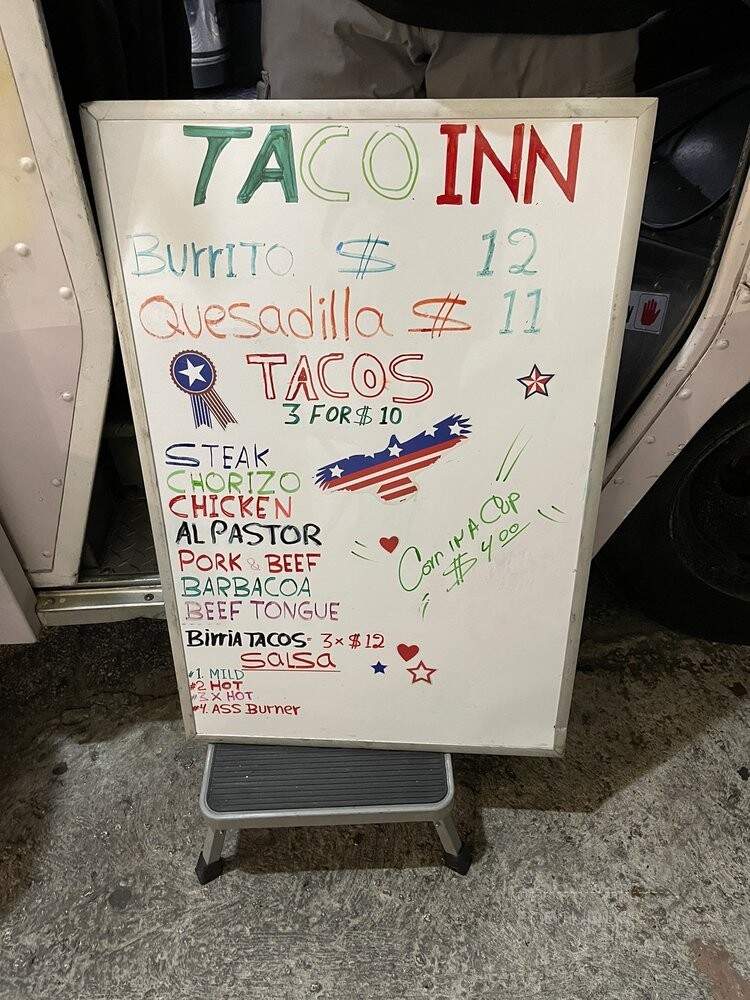 TACO INN
Burrito $ 12
Quesadilla $ 11
TACOS
3 FOR $ 10
STEAK
CHORIZO
CHICKEN
AL PASTOR
PORK & BEEF
BARBACOA
BEEF TONGUE
Corn IN A CUP
$ 4.00
Birria TACOS- 3 x $12
SALSA
#1. MILD
#2 HOT
#3 X HOT
#4. ASS Burner